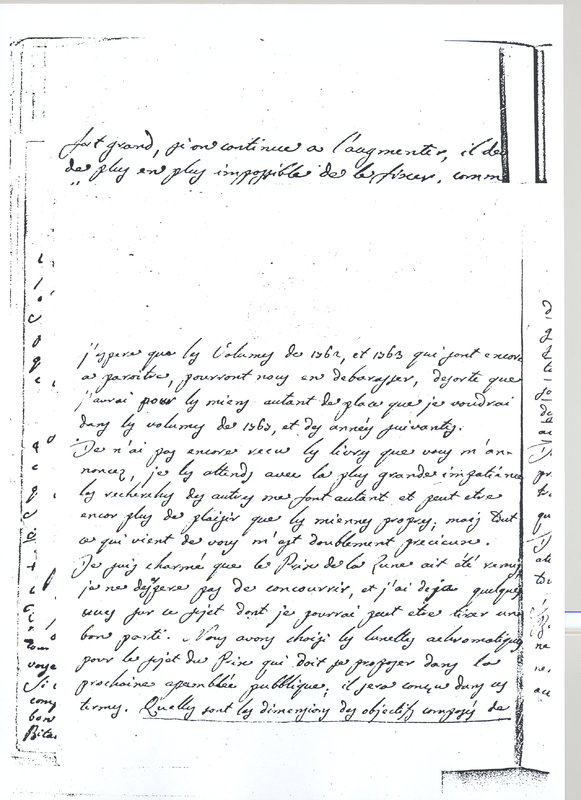 fort grand, si on continue a l'augmenter, il de
de plus en plus impossible de le fixer. comm
j'espere que les Volumes de 1762, et 1763 qui sont encore
a paroitre, pourront nous en debarasser, desorte que
j'aurai pour les miens autant de place que je voudrai
dans les volumes de 1763, et des annees suivantes.
Je n'ai pas encore recu les livres que vous m'an-
noncez, je les attends avec la plus grande impatience
les recherches des autres me font autant et peut etre
encor plus de plaisir que les miennes propres; mais tout
ce qui vient de vous m'est doublement precieux.
Je suis charmé que le Prix de la Lune ait été remis
je ne desespere pas de concourrir, et j'ai deja quelques
vues sur ce sujet dont je pourrai peut etre tirer un
bon parti. Nous avons choisi les lunettes achromatiques
pour le sujet du Prix qui doit se proposer dans la
prochaine assemblée pubblique; il sera conçu dans ces
termes. Quelles sont les dimensions des objectifs composés de